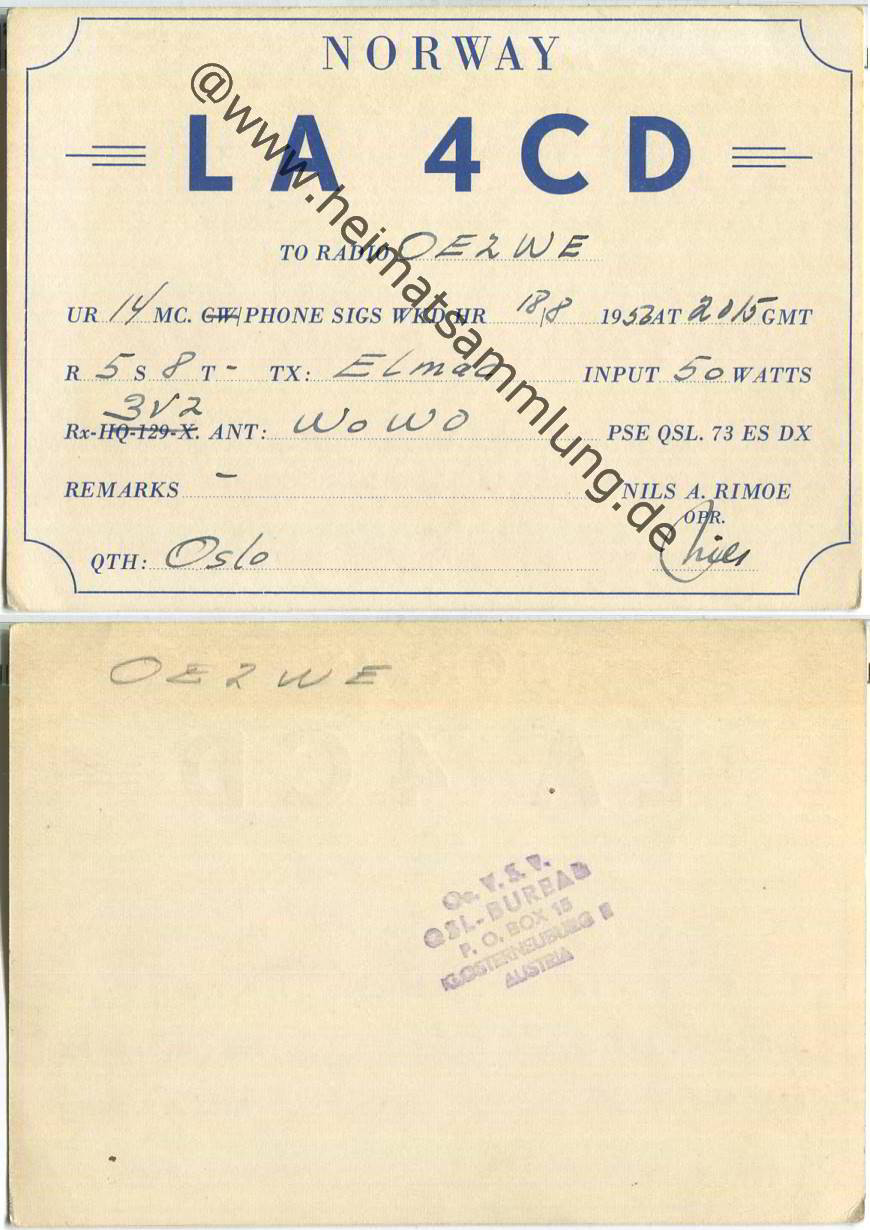 NORWAY
LA 4CD
TO RADIO OE2WE
UR 14 MC. CW PHONE SIGS WKD HR 18/8 1953 AT 2015 GMT
R 5 S 8 T - TX: Elmac INPUT 50 WATTS
3V2
Rx-HQ-129-X. ANT: WOWO PSE QSL. 73 ES DX
REMARKS - NILS A. RIMOE
OPR.
QTH: Oslo Nils
@www.heimatsammlung.de
OE2WE
Oe. V. S. V.
QSL-BUREAU
P. O. BOX 15
KLOSTERNEUBURG II
AUSTRIA